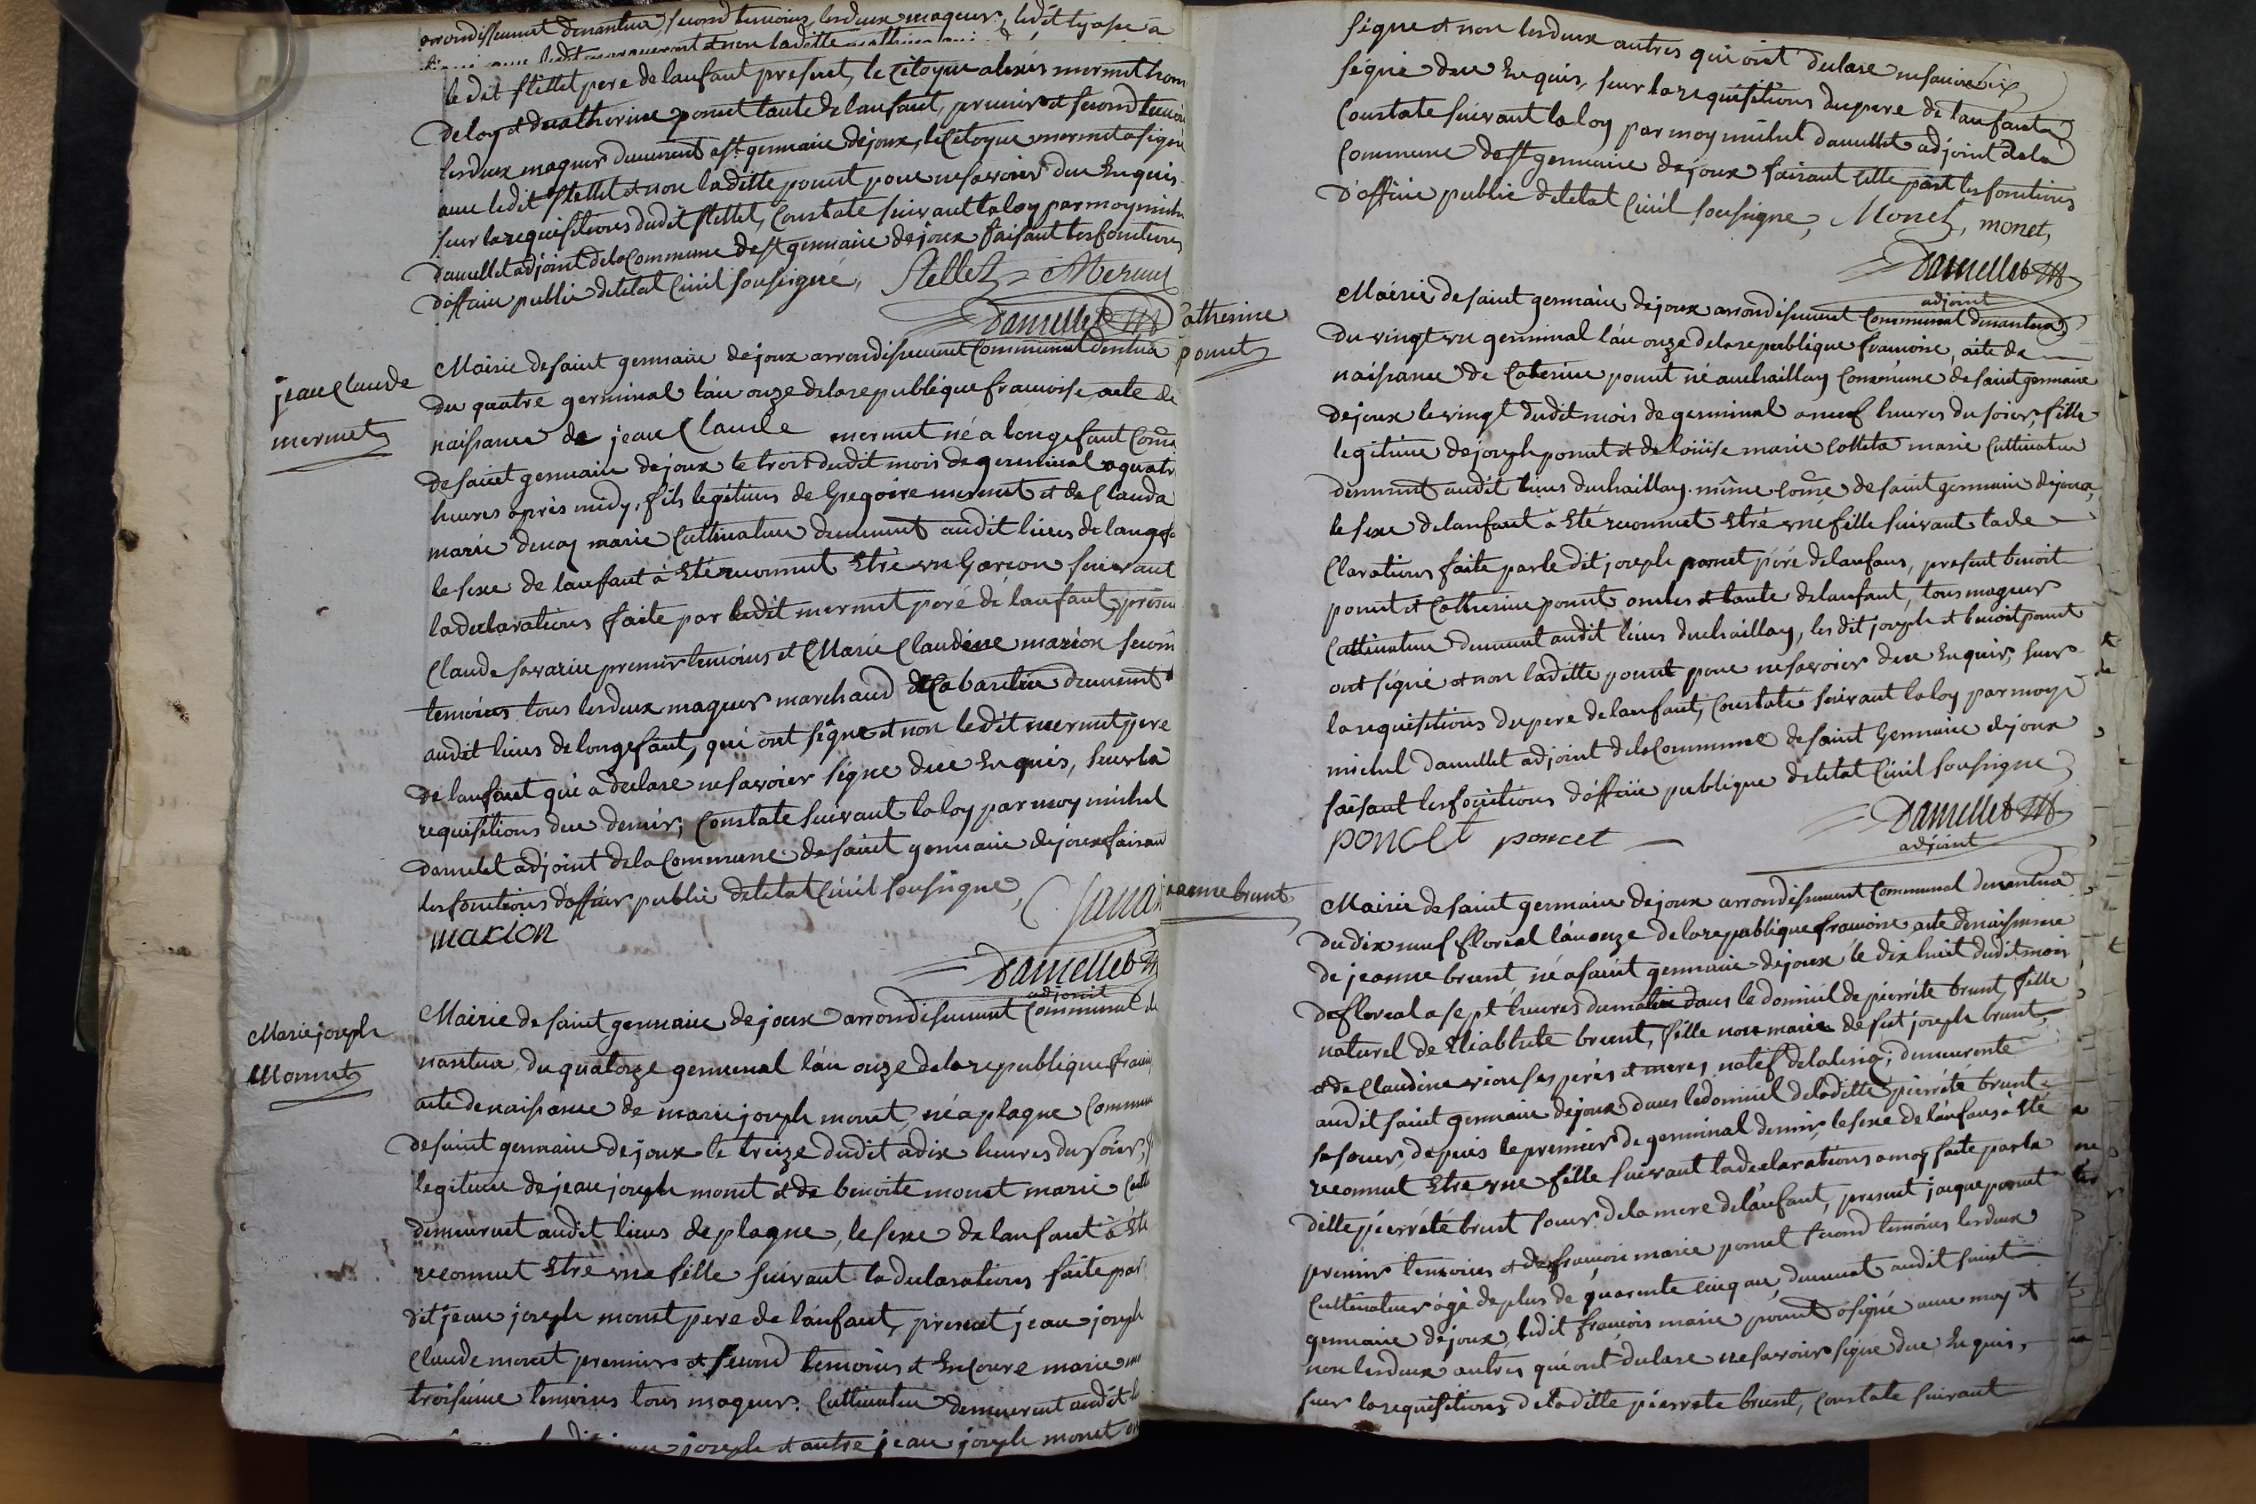 arrondissement denantua, second temoins, lesdeux mageurs, ledit
le dit stellet pere delanfant present, le Citoyen alexis mermet hom
deloy et decatherine poncet tante delanfant, premier et second temoin
lesdeux mageurs demeurent a st germaine dejoux, le Citoyen mermet a signé
avec ledit stellet et non laditte poncet pour nesavoir due Enquis
sur larequisitions dudit stellet, Constate suivant laloy parmoy miche
damellet adjoint delaCommune de st germaine dejoux faisant lesfonctions
d'officier public deletat Civil soussigné, Stellet Mermet
Damellet
jean Claude
mermet
Mairie desaint germaine dejoux arrondissement Communal denantua
du quatre germinal l'an onze delarepublique francoise acte de
naissance de jean Claude mermet né a longefant Come
desaint germaine dejoux le trois dudit mois de germinal a quatre
heures après midy, fils legitime de Gregoire mermet et de Clauda
marie marie Cultivateur demeurent audit lieus de longefa
le sexe de lanffant à Eté reconnut Etre un Garcon suivant
ladeclarations faite par ledit mermet peré dé lanfant, présen
Claude savarin premier temoins et Marie Claudine marion secon
temoins tous lesdeux mageurs marchand et Cabaretier demeurent
audit lieus delongefant, qui ont signé et non ledit mermet pere
de lanfant qui a declare nesavoier signe due Enquis, sur la
requisitions due denier, Constate suivant laloy par moy michel
damelet adjoint delaCommune desaint germaine dejoux faisan
lesfonctions d'officier public deletat Civil soussigne,
marion
Damellet
adjoint
Marie joseph
Monnet
Mairie desaint germaine dejoux arrondissement Communal de
nantua du quatorze germinal l'an onze delarepublique franco
acte denaissance de mariejoseph monet, né a plagne Commune
desaint germaine dejoux le treize dudit a dix heures du soier,
legitime de jean joseph monet et de benoite monet marie Cult
demeurent audit lieus de plagne, le sexe de lanfant à Eté
reconnut Etre une fille suivant la declarations faite par
dit jean joseph monet pere de lanfant, present jean joseph
Claude monet premier et second temoins et Encoure marie
troisieme temoins tous mageurs, Cultivateur demeurent audit
joseph et autre jean joseph monet
signe et non lesdeux autres qui ont declare nesavoir
signé due Enquis, sur larequisitions dupere de lanfant
Constate suivant la loy par moy michel damellet adjoint dela
Commune dest germaine dejoux faisant les fonctions
d'officier public deletat Civil soussigne, Monet, monet,
Damellet
adjoint
Catherine
poncet
Mairie desaint germaine dejoux arrondissement Communal denantua
du vingt un germinal l'an onze delarepublique francoise, acte de
naissance de Caterine poncet né auchaillay Commune desaint germaine
dejoux le vingt dudit mois de germinal a neuf heures du soier, fille
legitime dejoseph poncet et de louise marie Colleta marie Cultivateur
demeurent audit lieus duchaillay même Come desaint germaine dejoux,
le sexe delanfant à Eté reconnut Etré une fille suivant lade
Clarations faite parle dit joseph poncet péré delanfans, present benoit
poncet et Catherine poncet oncles et tante delanfant, tous mageurs
Cultivateur demeurent audit lieus duchaillay, les dit joseph et benoit poncet
ont signé et non laditte poncet pour nesavoier due Enquis, sur
larequisitions dupere delanfant, Constate suivant laloy parmoy
michel damellet adjoint delaCommune desaint Germaine dejoux
faisant lesfonctions d'officier publique deletat Civil soussigne
poncet poncet
Damellet
adjoint
jeanne brunt
Mairie desaint germaine dejoux arrondissement Communal denantua
dudix neuf floréal l'an onze delarepublique francoise acte denaissance
de jeanne brunt, né a saint germaine dejoux le dix huit dudit mois
defloréal a sept heures dumatin dans le domicil de pierrete brunt fille
naturel de Eliabhete brunt, fille non marie de feut joseph brunt,
et de Claudine ses perés et meres natif ; demeurente
audit saint germaine dejoux dans ledomicil deladitte pierrété brunt
sa soeur, depuis le premier de germinal dernier, le sexe de lanfans à Eté
reconnut Etre une fille suivant ladeclarations a moy faite par la
ditte pierrété brunt soeur de la mere delanfant, present jacque poncet
premier temoins et de francois marie poncet second temoins lesdeux
Cultivateur ágé de plus de quarente cinq ans, demeurent audit saint
germaine dejoux, ledit francois marie poncet a signé avec moy et
non lesdeux autres qui ont declare nesavoir signe due Enquis,
sur larequisitions deladitte pierrete brunt, Constate suivant